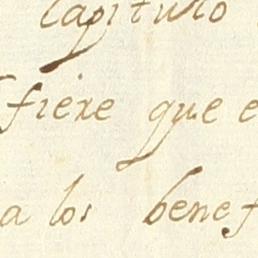 Capitulo
fiere que e
a los benef